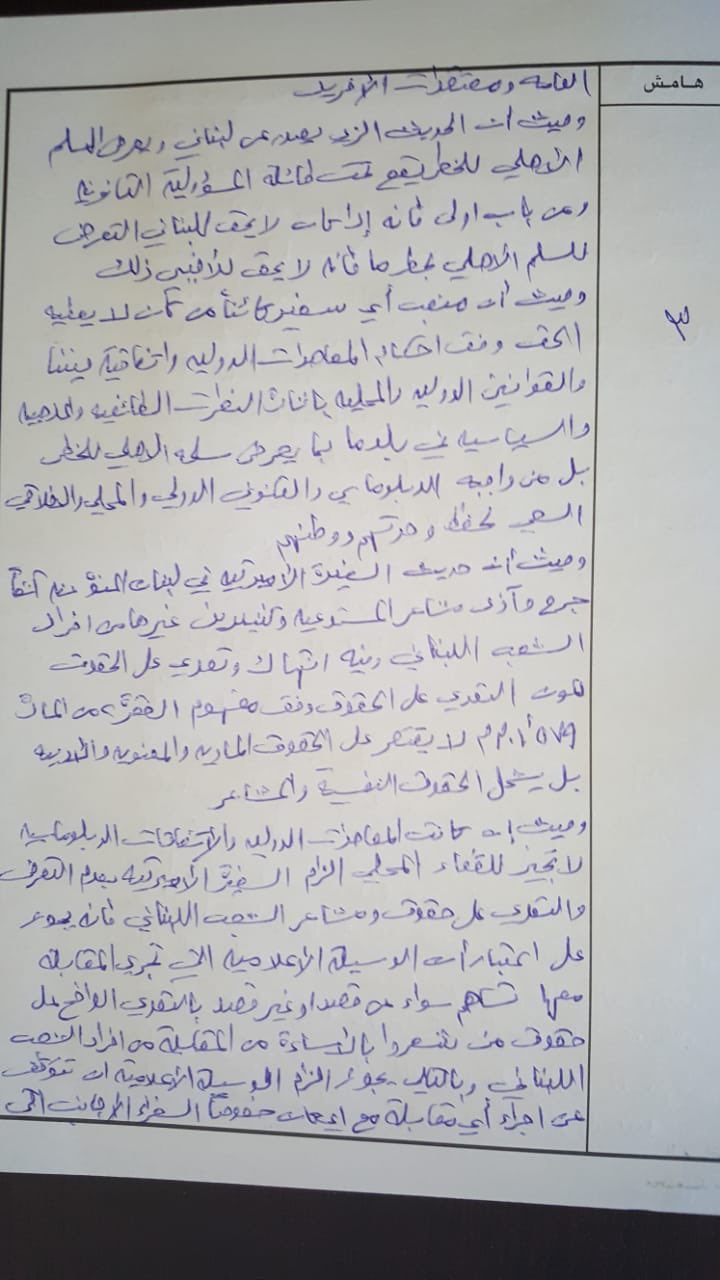 هامش
٣
العامة ومعتقدات الآخرين
وحيث أن الحديث الذي يصدر عن لبناني ويعرض السلم
الأهلي للخطر يقع تحت طائلة المسؤولية القانونية
ومن باب اولى فانه إذا كان لا يحق للبناني التعرض
للسلم الأهلي بخطر ما فانه لا يحق للأجنبي ذلك
وحيث أن منصب أي سفير كائناً من كان لا يعطيه
الحق وفق احكام المعاهدات الدولية واتفاقية فيينا
والقوانين الدولية والمحلية باثارة النعرات الطائفية والمذهبية
والسياسية في بلد ما بما يعرض سلمه الاهلي للخطر
بل من واجبه الدبلوماسي والقانوني الدولي والمحلي والاخلاقي
السعي لحفظ وحدتهم ووطنهم
وحيث أن حديث السفيرة الأميركية في لبنان المنوه عنه آنفاً
جرح وآذى مشاعر المستدعية وكثيرين غيرها من افراد
الشعب اللبناني وفيه انتهاك وتعدي على الحقوق
كون التعدي على الحقوق وفق مفهوم الفقرة ٢ من المادة
٥٧٩ أ.م.م لا يقتصر على الحقوق المادية والمعنوية
بل يشمل الحقوق النفسية والمشاعر
وحيث إن كانت المعاهدات الدولية والاتفاقات الدبلوماسية
لا تجيز للقضاء المحلي الزام السفيرة الأميركية بعدم التعرض
والتعدي على حقوق ومشاعر الشعب اللبناني فانه يجوز
على اعتبار أن الوسيلة الاعلامية التي تجري المقابلة
معها تساهم سواء عن قصد او غير قصد بالتعدي الواضح على
حقوق من شعروا بالاساءة من المقابلة من افراد الشعب
اللبناني وبالتالي يجوز الزام الوسيلة الاعلامية ان تتوقف
عن اجراء أي مقابلة مع السفراء الأجانب التي